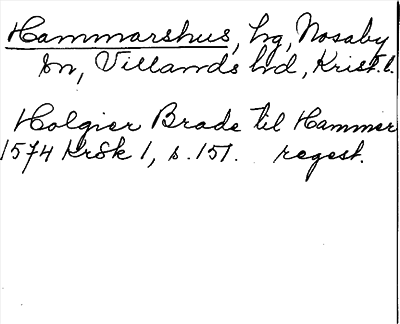 Hammarshus, hg, Nosaby
sn, Villands hd, Krist. l.
Holgier Brade til Hammer
1574 KrSk 1, s. 151. regest.